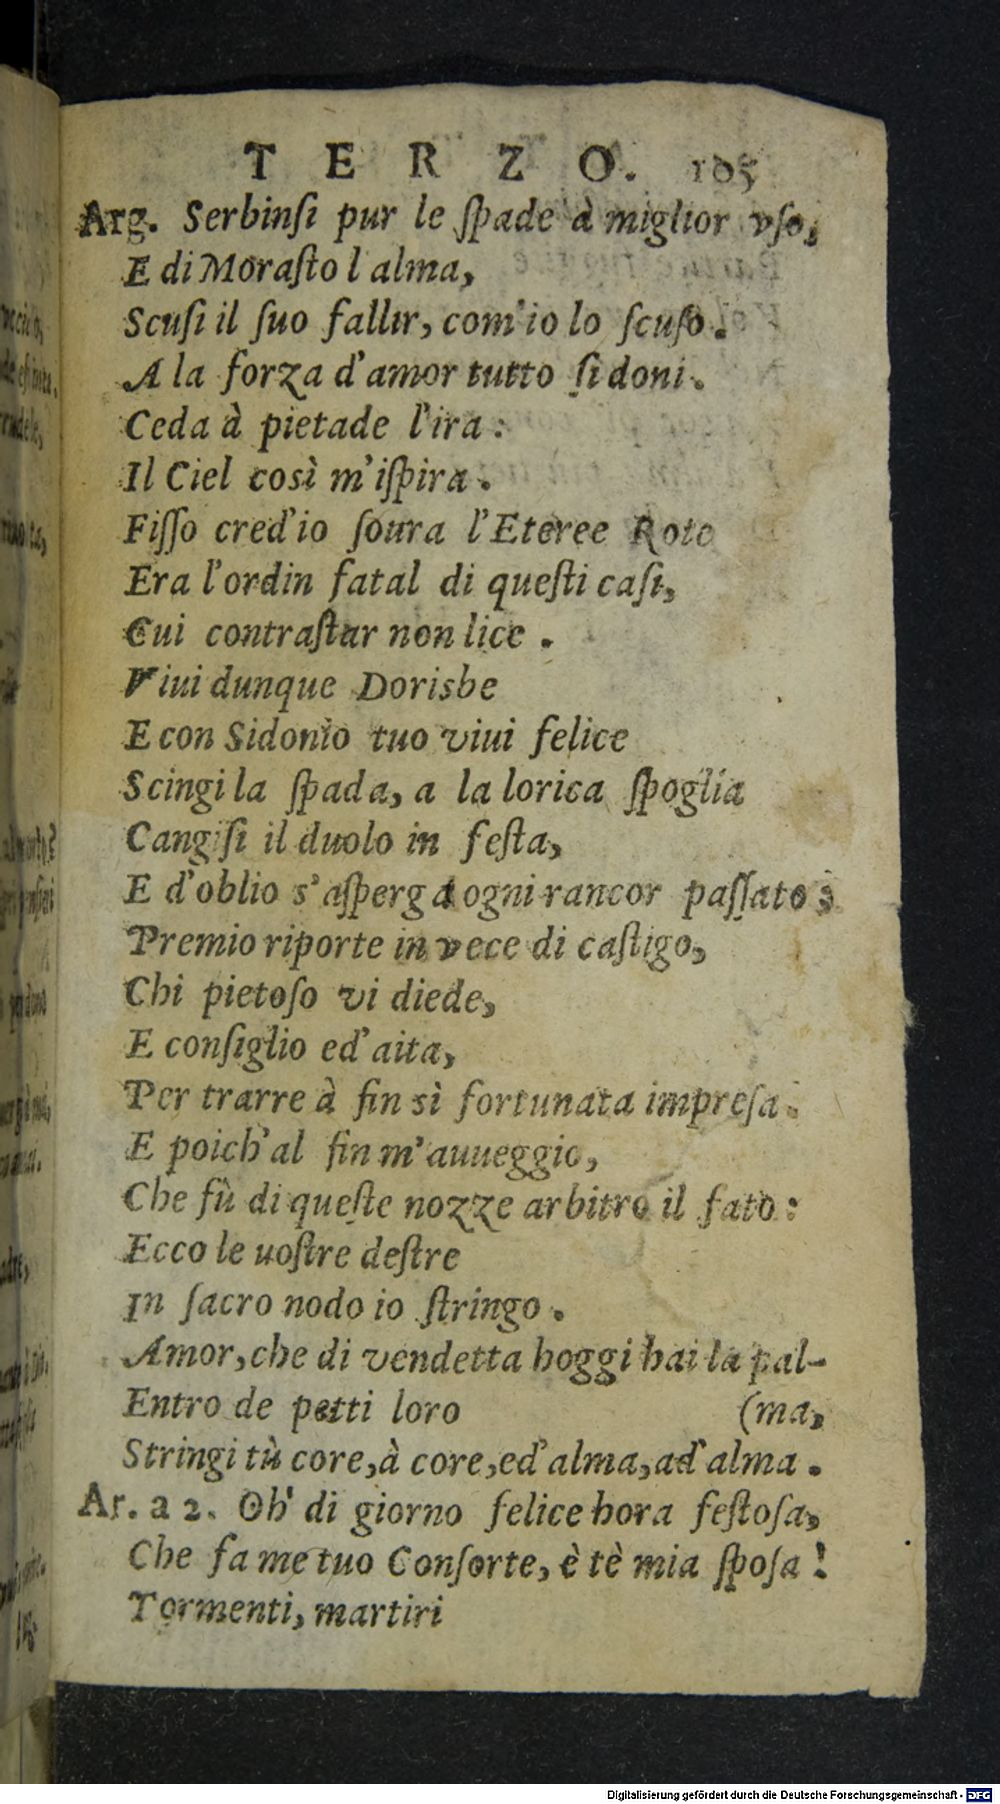 TERZO. 105
Arg. Serbinſi pur le ſpade à miglior vſo,
E di Moraſto l alma,
Scuſi il ſuo fallir, com'io lo ſcuſo.
A la forza d'amor tutto ſi doni.
Ceda à pietade l'ira:
Il Ciel così m'iſpira.
Fiſſo cred'io ſoura l'Eteree Rote
Era l'ordin fatal di queſti caſi,
Cui contraſtar non lice.
Viui dunque Dorisbe
E con Sidonio tuo viui felice
Scingi la ſpada, a la lorica ſpoglia
Cangiſi il duolo in feſta,
E d'oblio s'aſperga ogni rancor paſſato;
Premio riporte in vece di caſtigo,
Chi pietoſo vi diede,
E conſiglio ed'aita,
Per trarre à fin sì fortunata impreſa.
E poich'al fin m'auueggio,
Che fù di queſte nozze arbitro il fato:
Ecco le uoſtre deſtre
In ſacro nodo io ſtringo.
Amor, che di vendetta hoggi hai la pal-
Entro de petti loro (ma,
Stringi tù core, à core, ed'alma, ad'alma.
Ar. a 2. Oh' di giorno felice hora feſtoſa,
Che fa me tuo Conſorte, è tè mia ſpoſa!
Tormenti, martiri
Digitalisierung gefördert durch die Deutsche Forschungsgemeinschaft - DFG